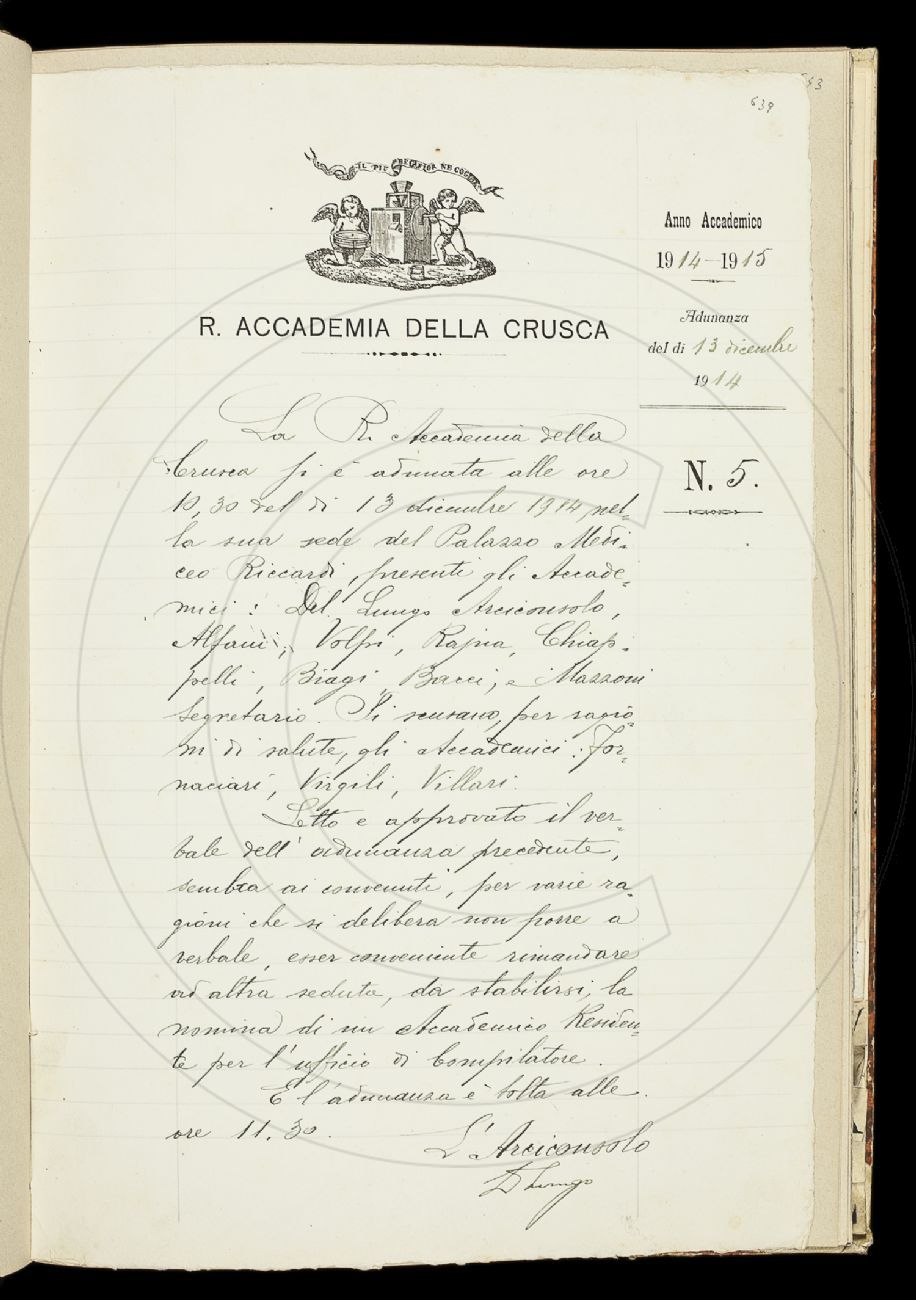 639
IL PIÙ BEL FIOR NE COGLIE
R. ACCADEMIA DELLA CRUSCA
Anno Accademico
1914-1915
Adunanza
del dì 13 dicembre
1914
N. 5.
La R. Accademia della
Crusca si è adunata alle ore
10,30 del dì 13 dicembre 1914, nel-
la sua sede del Palazzo Medi-
ceo Riccardi, presenti gli Accade-
mici: Del Lungo Arciconsolo,
Alfani, Volpi, Rajna, Chiap-
pelli, Biagi, Bacci, e Mazzoni
Segretario. Si scusano, per ragio-
ni di salute, gli Accademici: For-
naciari, Virgili, Villari.
Letto e approvato il ver-
bale dell'adunanza precedente,
sembra ai convenuti, per varie ra-
gioni che si delibera non porre a
verbale, esser conveniente rimandare
ad altra seduta, da stabilirsi, la
nomina di un Accademico Residen-
te per l'ufficio di Compilatore.
E l'adunanza è tolta alle
ore 11.30.
L'Arciconsolo
DLungo